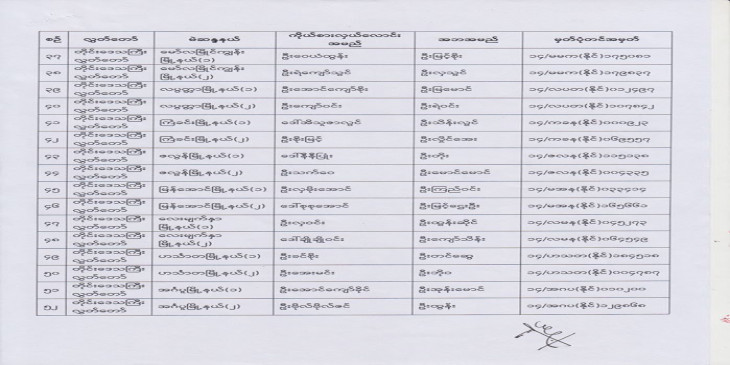 စဉ် လွှတ်တော် မဲဆန္ဒနယ် ကိုယ်စားလှယ်လောင်း အမည် အဘအမည် မှတ်ပုံတင်အမှတ်
၃၇ တိုင်းဒေသကြီး လွှတ်တော် မော်လမြိုင်ကျွန်း မြို့နယ်(၁) ဦးဝေယံထွန်း ဦးမြင့်စိုး ၁၄/မမက(နိုင်)၁၇၅၀၈၁
၃၈ တိုင်းဒေသကြီး လွှတ်တော် မော်လမြိုင်ကျွန်း မြို့နယ်(၂) ဦးရဲကျော်သွင် ဦးလှသွင် ၁၄/မမက(နိုင်)၁၇၉၈၃၇
၃၉ တိုင်းဒေသကြီး လွှတ်တော် လပွတ္တာမြို့နယ်(၁) ဦးအောင်ကျော်စိုး ဦးမြမောင် ၁၄/လပတ(နိုင်)၀၁၂၄၉၇
၄၀ တိုင်းဒေသကြီး လွှတ်တော် လပွတ္တာမြို့နယ်(၂) ဦးကျော်ဝင်း ဦးရဲဝင်း ၁၄/လပတ(နိုင်)၁၀၇၈၄၂
၄၁ တိုင်းဒေသကြီး လွှတ်တော် ကြံခင်းမြို့နယ်(၁) ဒေါ်သီသူဇာလွင် ဦးသိန်းလွင် ၁၄/ကခန(နိုင်)၀၀၀၉၂၃
၄၂ တိုင်းဒေသကြီး လွှတ်တော် ကြံခင်းမြို့နယ်(၂) ဦးစိုးမြင့် ဦးလှိုင်အေး ၁၄/ကခန(နိုင်)၀၆၉၅၅၇
၄၃ တိုင်းဒေသကြီး လွှတ်တော် ဇလွန်မြို့နယ်(၁) ဒေါ်နီနီပြုံး ဦးတိုး ၁၄/ဇလန(နိုင်)၁၁၅၁၃၈
၄၄ တိုင်းဒေသကြီး လွှတ်တော် ဇလွန်မြို့နယ်(၂) ဦးသက်ဝေ ဦးမောင်မောင် ၁၄/ဇလန(နိုင်)၀၀၄၃၃၅
၄၅ တိုင်းဒေသကြီး လွှတ်တော် မြန်အောင်မြို့နယ်(၁) ဦးလှမိုးအောင် ဦးကြည်ဝင်း ၁၄/မအန(နိုင်)၀၃၃၄၁၄
၄၆ တိုင်းဒေသကြီး လွှတ်တော် မြန်အောင်မြို့နယ်(၂) ဒေါ်စုစုအောင် ဦးမြင့်ဌေးဦး ၁၄/မအန(နိုင်)၁၆၅၆၆၁
၄၇ တိုင်းဒေသကြီး လွှတ်တော် လေးမျက်နှာ မြို့နယ်(၁) ဦးလှဝင်း ဦးထွန်းဆိုင် ၁၄/လမန(နိုင်)၀၄၅၂၇၃
၄၈ တိုင်းဒေသကြီး လွှတ်တော် လေးမျက်နှာ မြို့နယ်(၂) ဒေါ်ချိုချိုဝင်း ဦးကျော်သိန်း ၁၄/လမန(နိုင်)၀၆၄၅၄၉
၄၉ တိုင်းဒေသကြီး လွှတ်တော် ဟင်္သာတမြို့နယ်(၁) ဦးခင်စိုး ဦးတင်ဆွေ ၁၄/ဟသတ(နိုင်)၁၈၄၅၁၈
၅၀ တိုင်းဒေသကြီး လွှတ်တော် ဟင်္သာတမြို့နယ်(၂) ဦးအေးမင်း ဦးဘိုဝ ၁၄/ဟသတ(နိုင်)၀၀၄၇၈၇
၅၁ တိုင်းဒေသကြီး လွှတ်တော် အင်္ဂပူမြို့နယ်(၁) ဦးအောင်ကျော်ခိုင် ဦးအုန်းမောင် ၁၄/အဂပ(နိုင်)၀၁၀၂၀၀
၅၂ တိုင်းဒေသကြီး လွှတ်တော် အင်္ဂပူမြို့နယ်(၂) ဦးဗိုလ်ဗိုလ်ဇင် ဦးထွန်း ၁၄/အဂပ(နိုင်)၁၂၉၈၆၈